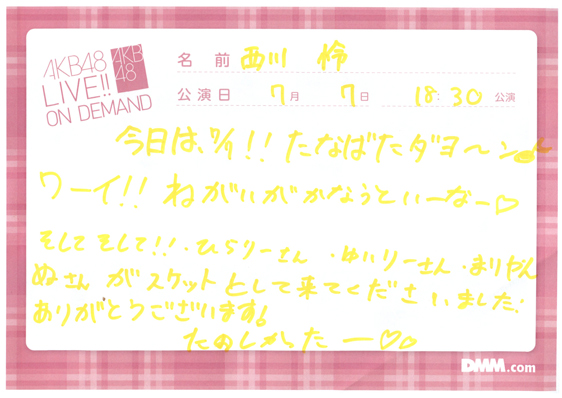 AKB48
LIVE!!
ON DEMAND
AKB
48
名 前 西川 怜
公演日 7月 7日 18:30 公演
今日は、7/7!! たなばたダヨ〜ン♪
ワーイ!! ねがいがかなうといーなー♡
そしてそして!!・ひらりーさん ・ゆいりーさん・まりやん
ぬさんがスケットとして来てくださいました!
ありがとうございます!
たのしかったー♡♡
DMM.com